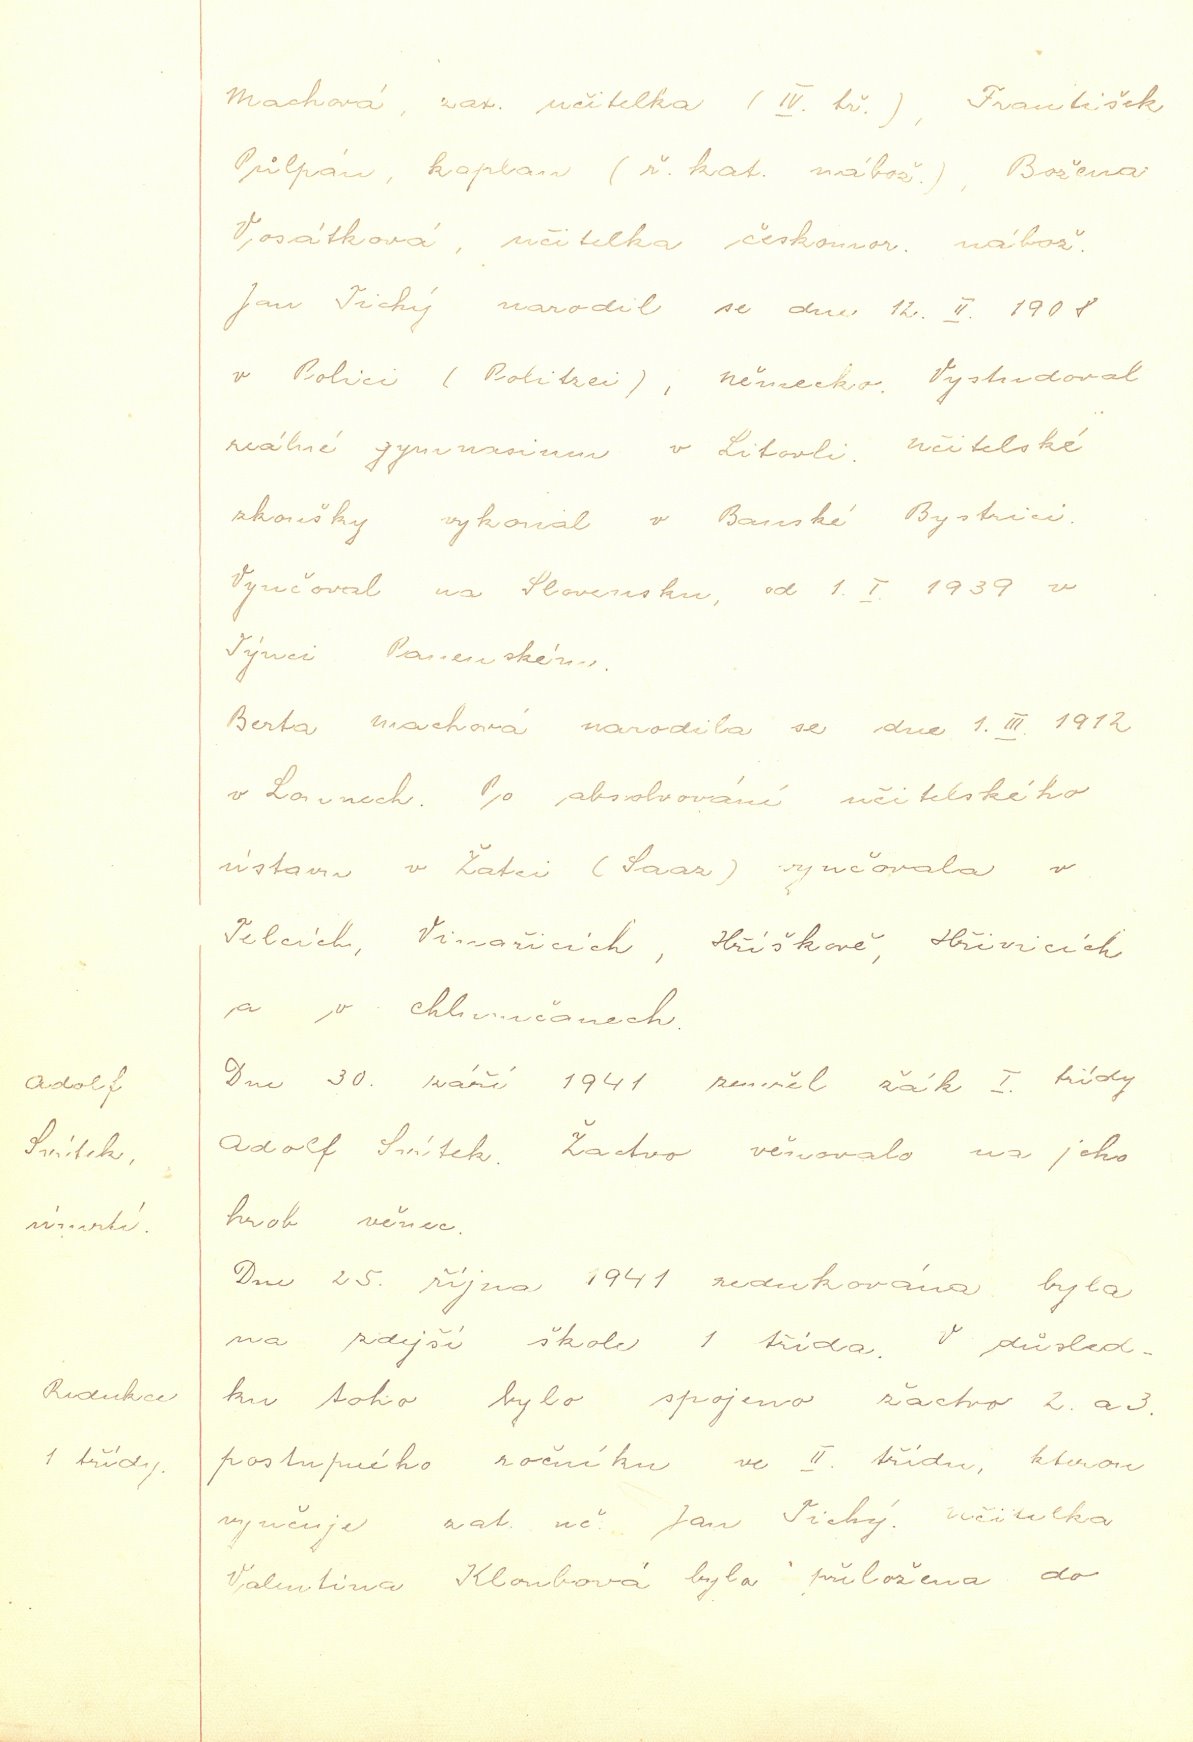 Machová, zat. učitelka (IV. tř.), František
Půlpán, kaplan (ř. kat. nábož.), Božena
Vosátková, učitelka českomor. nábož.
Jan Tichý narodil se dne 12. II. 1908
v Polici (Politzei), Německo. Vystudoval
reálné gymnasium v Litovli. Učitelské
zkoušky vykonal v Banské Bystrici.
Vyučoval na Slovensku, od 1. I. 1939 v
Týnci Panenském.
Berta Machová narodila se dne 1. III. 1912
v Lounech. Po absolvování učitelského
ústavu v Žatci (Saaz) vyučovala v
Telcích, Vinařicích, Hříškově, Hřivicích
a v Chlumčanech.
Adolf
Smítek,
úmrtí.
Dne 30. září 1941 zemřel žák I. třídy
Adolf Smítek. Žactvo věnovalo na jeho
hrob věnec.
Dne 25. října 1941 redukována byla
na zdejší škole 1 třída. V důsled-
Redukce
1 třídy.
ku toho bylo spojeno žactvo 2. a 3.
postupného ročníku ve II. třídu, kterou
vyučuje zat. uč. Jan Tichý. Učitelka
Valentina Kloubová byla přiložena do